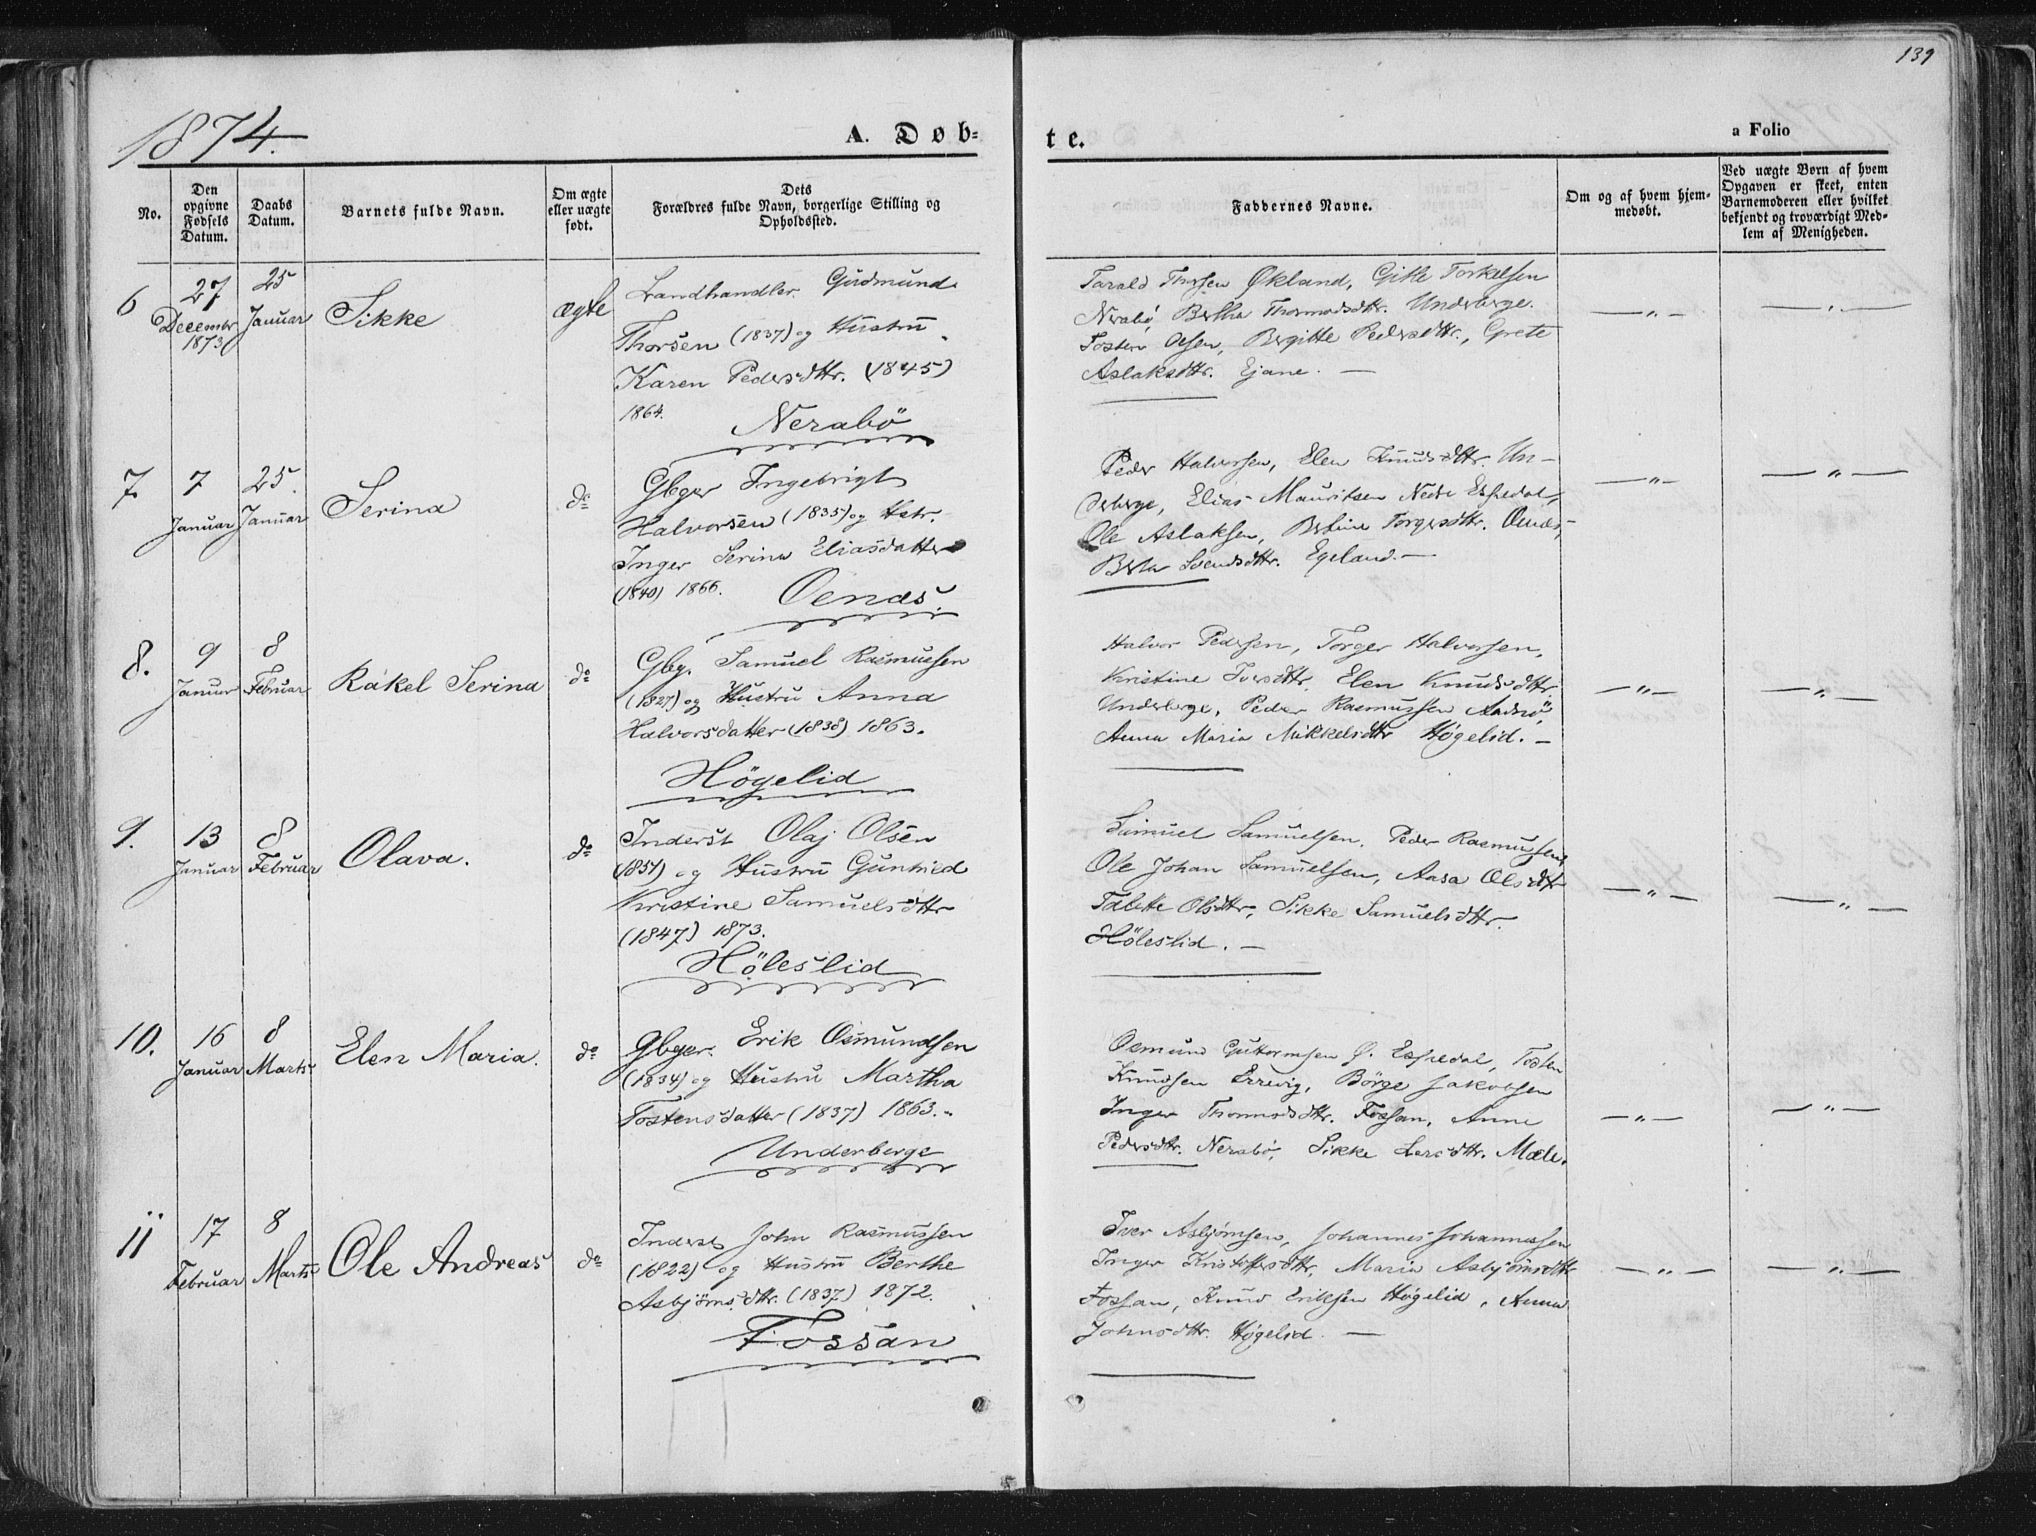 139
1874.
A. Døb-
te.
a Folio
No.
Den opgivne Fødsels Datum.
Daabs Datum.
Barnets fulde Navn.
Om ægte eller uægte født.
Dets Forældres fulde Navn, borgerlige Stilling og Opholdssted.
Faddernes Navne.
Om og af hvem hjemmedøbt.
Ved uægte Børn af hvem Opgaven er skeet, enten Barnemoderen eller hvilket bekjendt og troværdigt Medlem af Menigheden.
6
27 December 1873
25 Januar
Sikke
ægte
Landhandler Gudmund
Thorsen (1837) og Hustru
Karen Pedersdttr. (1845)
1864.
Nerabö
Tarald Thorsen Økland, Gitle Torkelsen
Nerabø, Berthe Thormodsdttr. Underberge.
Tosten Olsen, Bergitte Pedersdttr., Grete
Aslaksdttr. Ejane. —
— " —
— " —
7.
7 Januar
25. Januar
Serina
do
Gbger Ingebrigt
Halvorsen (1835) og Hstr.
Inger Serina Eliasdatter
(1840) 1866.
Oenæs.
Peder Halvorsen, Elen Knudsdttr. Un-
derberge, Elias Mauritsen Nedre Espedal,
Ole Aslaksen, Bertine Torgersdttr. Oenæs,
Berta Svendsdttr. Egeland. —
— " —
— " —
8.
9 Januar
8 Februar
Rakel Serina
do
Gbg. Samuel Rasmussen
(1827) og Hustru Anna
Halvorsdatter (1838) 1863.
Högelid
Halvor Pedersen, Torger Halvorsen,
Kristine Iversdttr, Elen Knudsdttr
Underberge, Peder Rasmussen Aadnö,
Anna Maria Mikkelsdttr Høgelid. —
— " —
— " —
9.
13 Januar
8 Februar
Olava.
do
Inderst Olaj Olsen
(1851) og Hustru Gunhild
Kristine Samuelsdttr
(1847) 1873.
Höleslid
Samuel Samuelsen, Peder Rasmussen,
Ole Johan Samuelsen, Aasa Olsdttr
Tabette Olsdttr, Sikke Samuelsdttr.
Höleslid. —
— " —
— " —
10.
16 Januar
8 Marts
Elen Maria.
do
Gbger. Erik Osmundsen
(1834) og Hustru Martha
Tostensdatter (1837) 1863.
Underberge
Osmund Guttormsen Ø. Espedal, Tosten
Knudsen Errevig, Börge Jakobsen
Inger Thormodsdttr. Fossan, Anne
Pedersdttr. Nerabø, Sikke Larsdttr. Mæle.
— " —
— " —
11
17 Februar
8 Marts
Ole Andreas
do
Inderst John Rasmussen
(1822) og Hustru Berthe
Asbjörnsdttr. (1837) 1872.
Fossan
Iver Asbjørnsen, Johannes Johannessen
Inger Kristoffersdttr, Maria Asbjörnsdttr
Fossan, Knud Eriksen Høgelid, Anna
Johnsdttr. Høgelid. —
— " —
— " —